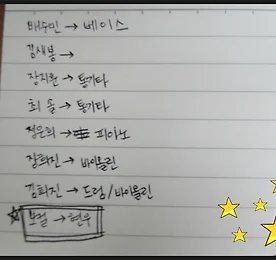 배수민 → 베이스
김새봉 →
장지환 → 통기타
최솔 → 통기타
정은희 → 피아노
장희진 → 바이올린
김희진 → 드럼/바이올린
보컬 → 현우